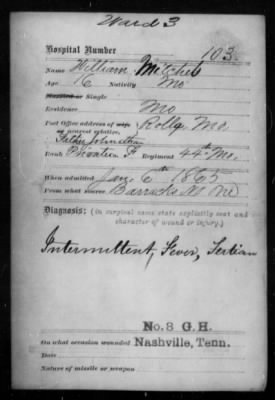 Ward 3
Hospital Number 103
Name William Mitchel
Age 16 Nativity Mo
Married or Single
Residence Mo
Post Office address of wife Rolla Mo.
or nearest relative,
Father John
Rank Private F Regiment 44th Mo.
When admitted Jan. 6th 1865
From what source Barracks
Diagnosis: (in surgical cases state explicitly seat and
character of wound or injury.)
Intermittent, Fever, Tertian
No. 8 G. H.
On what occasion wounded Nashville, Tenn.
Date
Nature of missile or weapon